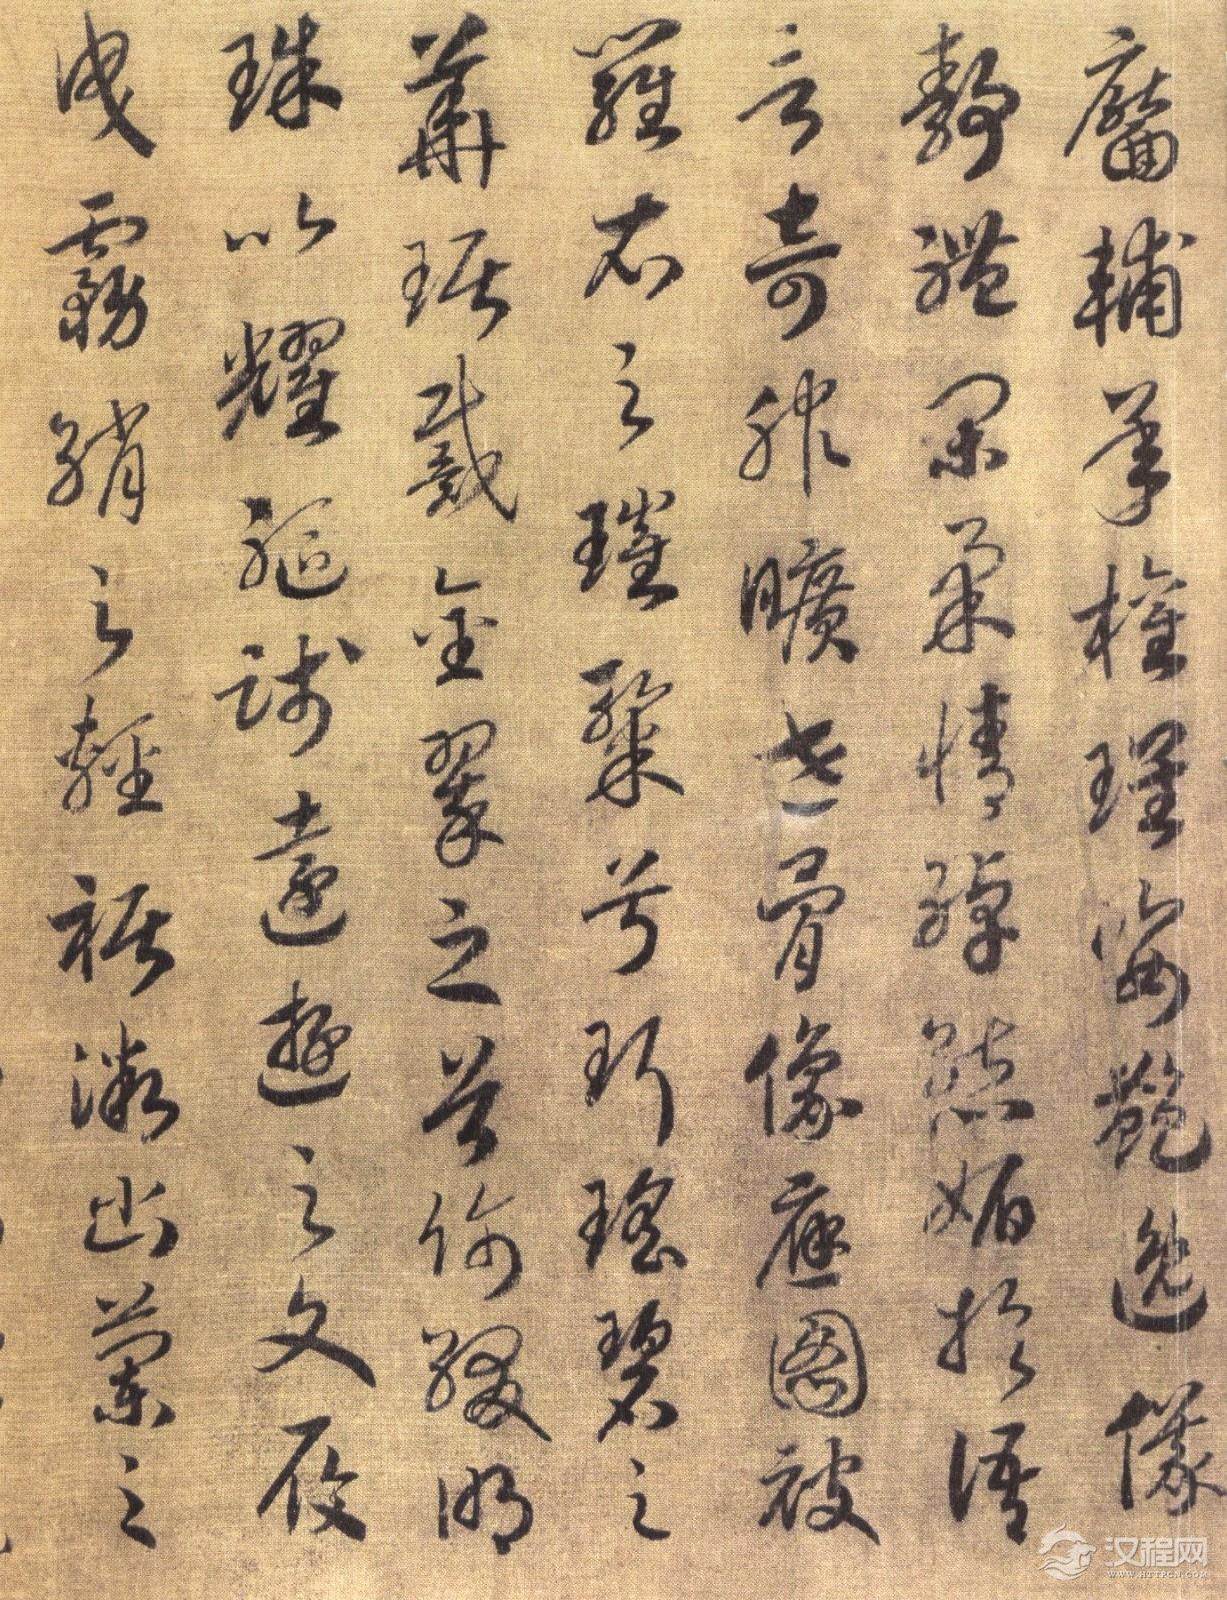 靨輔承權瓌姿艷逸儀
靜體閑柔情綽態媚於語
言奇服曠世骨像應圖被
羅衣之璀粲兮珥瑤碧之
華琚戴金翠之首飾綴明
珠以耀軀踐遠遊之文履
曳霧綃之輕裾微幽蘭之
汉程网
WWW.HTTPCN.COM